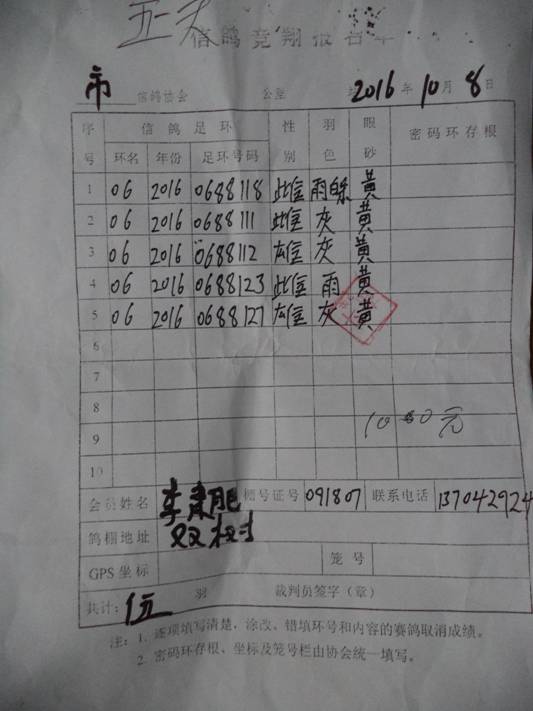 信鸽竞翔报名单
市 信鸽协会 公里 2016 年 10 月 8 日
序号 信鸽足环 性别 羽色 眼砂 密码环存根
环名 年份 足环号码
1 06 2016 0688118 雌 雨 黄
2 06 2016 0688111 雌 灰 黄
3 06 2016 0688112 雄 灰 黄
4 06 2016 0688123 雌 雨 黄
5 06 2016 0688127 雄 灰 黄
6
7
8
9
10
元
会员姓名 李 棚号证号 091807 联系电话 137042924
鸽棚地址 双
GPS 坐标 笼号
共计: 羽 裁判员签字（章）
注：1. 逐项填写清楚，涂改、错填环号和内容的赛鸽取消成绩。
2. 密码环存根、坐标及笼号栏由协会统一填写。